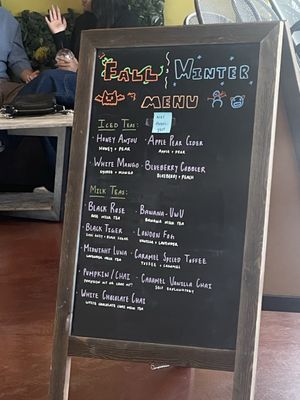 Fall Winter
Menu
Iced Teas:
Not
· Honey Anjou
Honey + Pear
· Apple Pear Cider
Apple + Pear
· White Mango
· Blueberry Cobbler
Blueberry + Peach
Milk Teas:
· Black Rose
Rose Milk Tea
· Banana-UwU
Banana Milk Tea
· Black Tiger
· London Fog
Vanilla + Lavender
· Midnight Luna
Lavender Milk Tea
· Caramel Spiced Toffee
Toffee + Caramel
· Pumpkin/Chai
Pumpkin w/ or Chai w/
· Caramel Vanilla Chai
Self Explanatory
· White Chocolate Chai
White Chocolate Chai Milk Tea